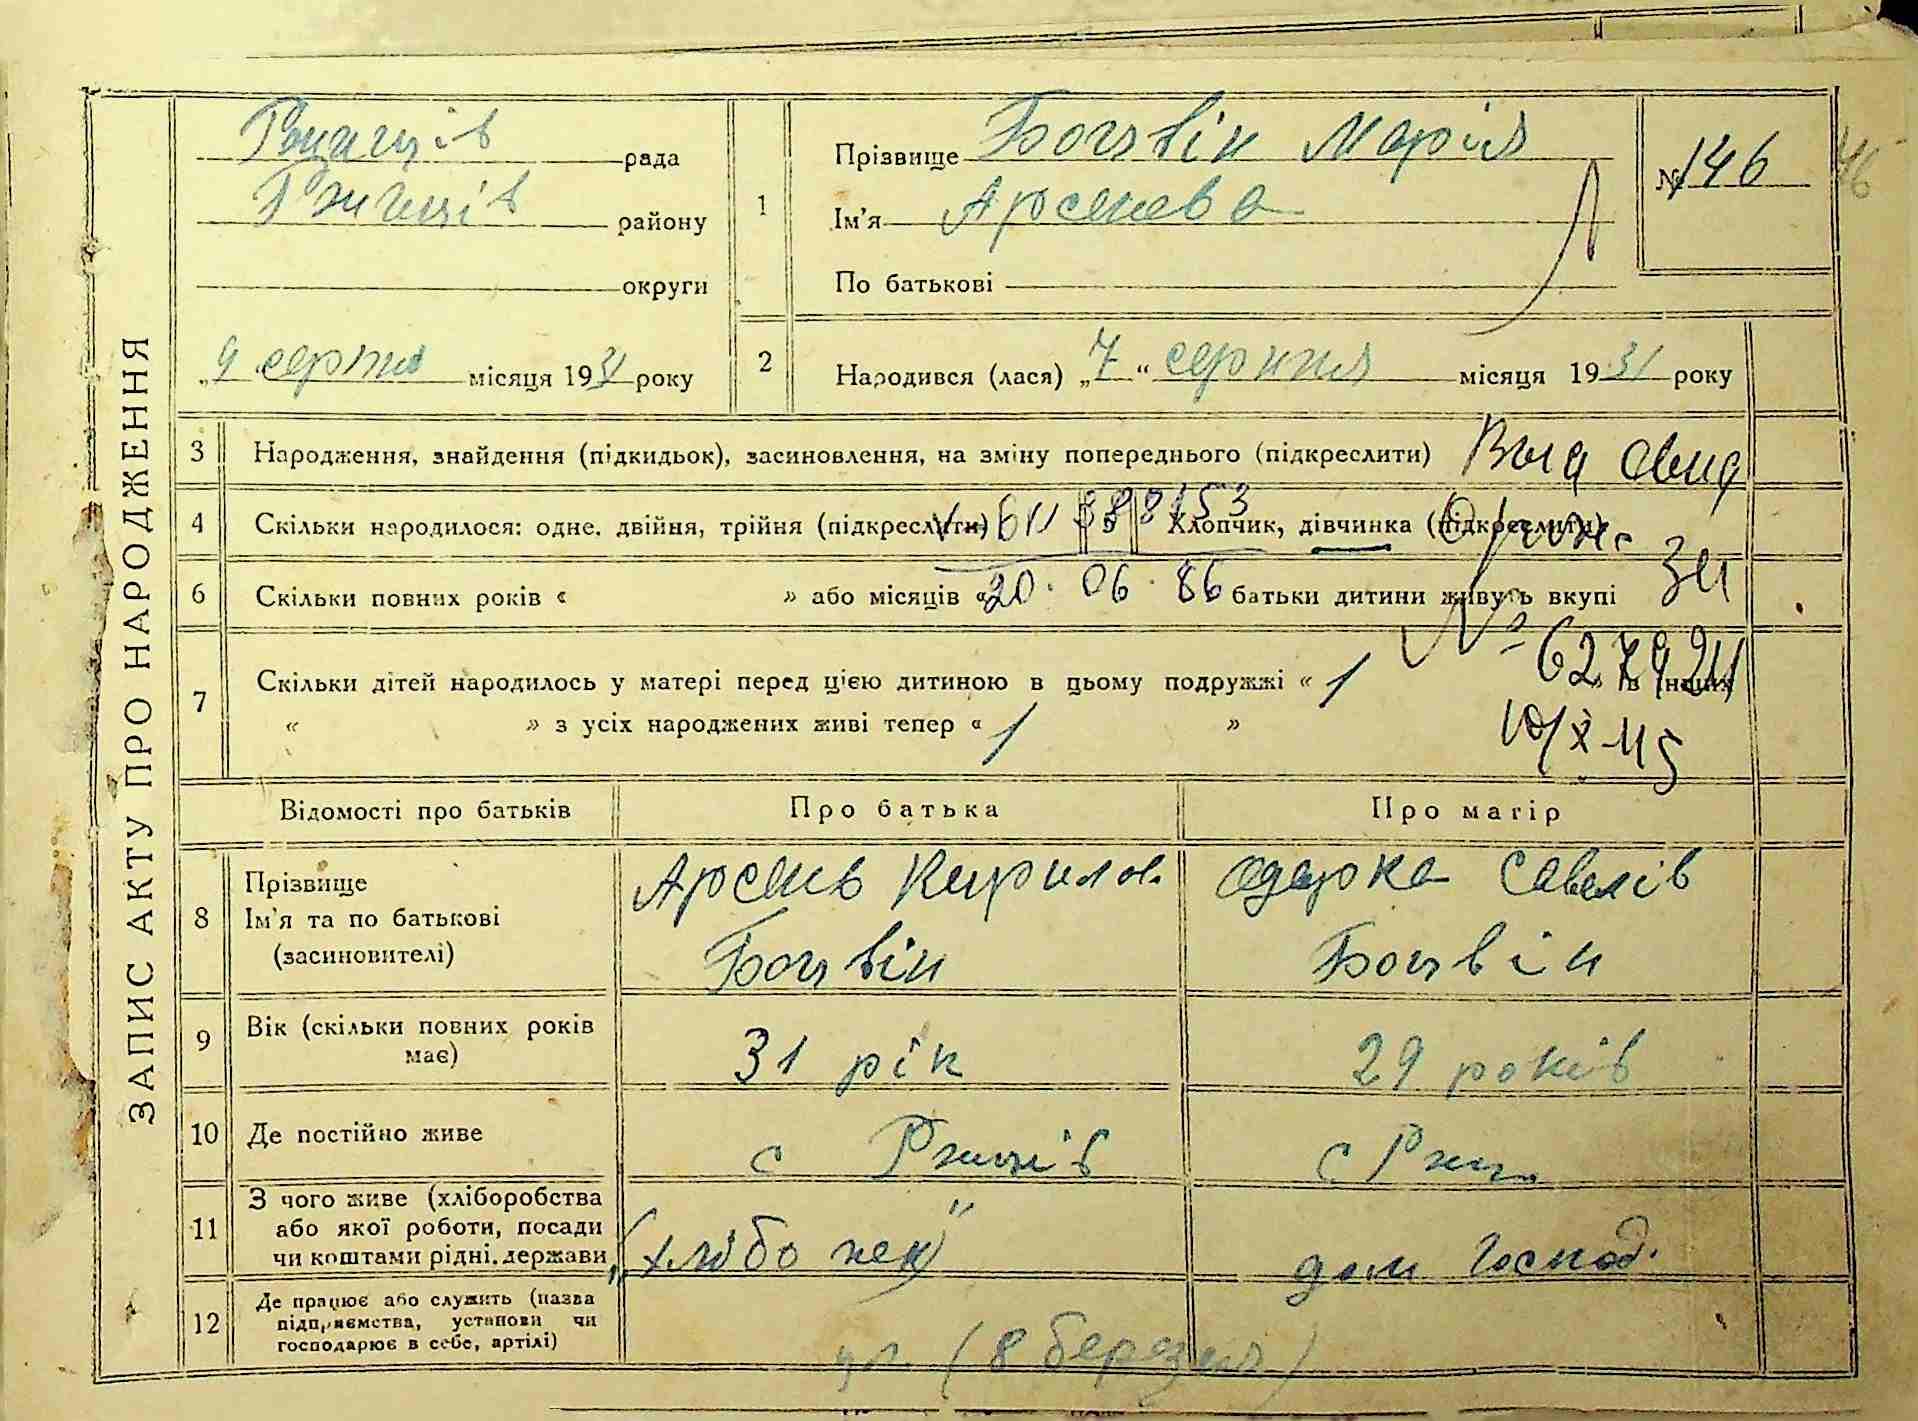 ЗАПИС АКТУ ПРО НАРОДЖЕННЯ
рада
району
округи
„9 серпня місяця 1931 року
1
Прізвище Богвін Марія
Ім'я Арсенева
По батькові
№ 146
46
2
Народився (лася) „7“ серпня місяця 1931 року
3 Народження, знайдення (підкидьок), засиновлення, на зміну попереднього (підкреслити)
4 Скільки народилося: одне, двійня, трійня (підкреслити) 5 Хлопчик, дівчинка (підкреслити)
388153
6 Скільки повних років « » або місяців « батьки дитини живуть вкупі
20.06.86
№ 627924
7 Скільки дітей народилось у матері перед цією дитиною в цьому подружжі « 1 » в інших
« » з усіх народжених живі тепер « 1 »
10/X-45
Відомості про батьків Про батька Про матір
8 Прізвище
Ім'я та по батькові
(засиновителі)
Арсень Кирилов. Одарка Савелів
Богвін Богвін
9 Вік (скільки повних років має) 31 рік 29 років
10 Де постійно живе с Ржищів с Ржищ.
11 З чого живе (хліборобства
або якої роботи, посади
чи коштами рідні, держави
дом господ.
12 Де працює або служить (назва
підприємства, установи чи
господарює в себе, артілі)
(8 березня)